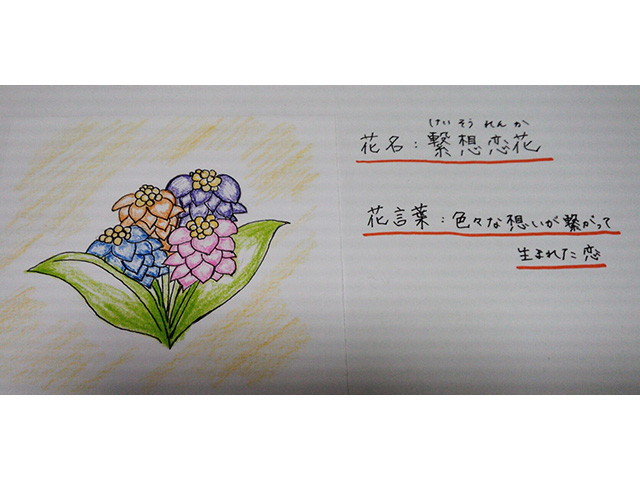 けいそうれんか
花名：繋想恋花
花言葉：色々な想いが繋がって
生まれた恋